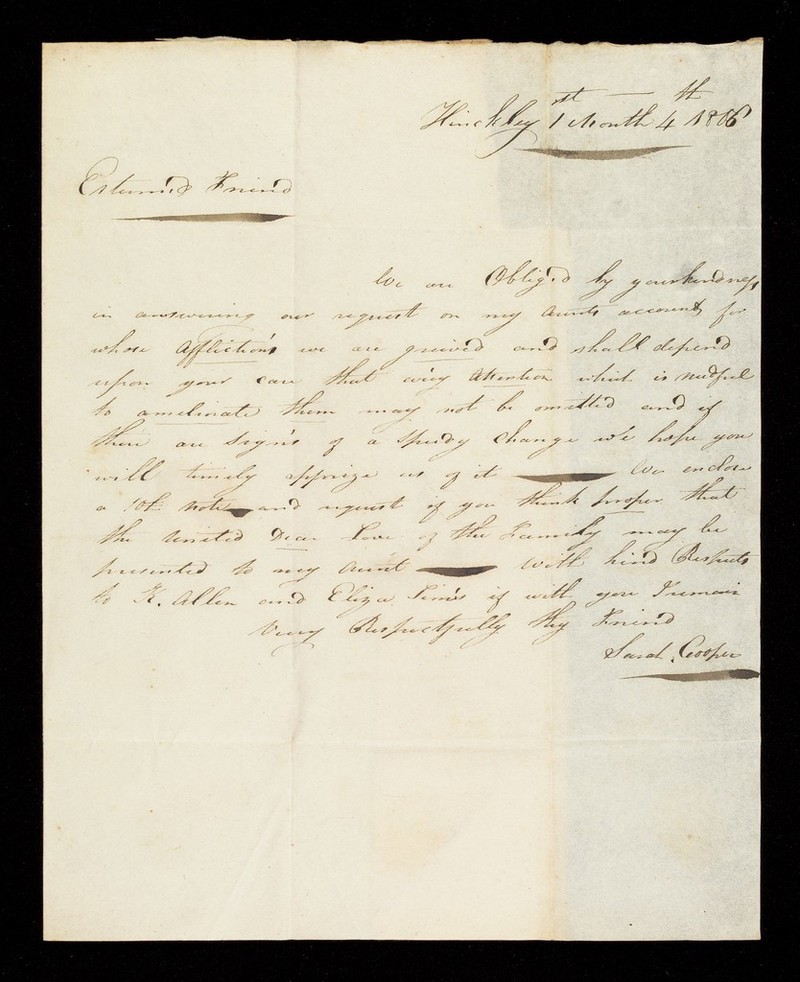 Hinckley 1st Month 4th 1806
Esteem'd Friend
We are Oblig'd by your kindness
in answering our request on my Aunts account for
whose Affliction's we are greived and shall depend
upon your care that ev'ry Attention which is needful
to ameliorate them may not be omitted and if
there are Sign's of a Speedy Change we hope you
will timely apprize us of it We enclose
a note and request if you think proper that
the United Dear Love of the Family may be
presented to my Aunt With kind Respects
to K. Allen and Eliza Sim's if with you I remain
Very Respectfully thy Friend
Sarah Cooper